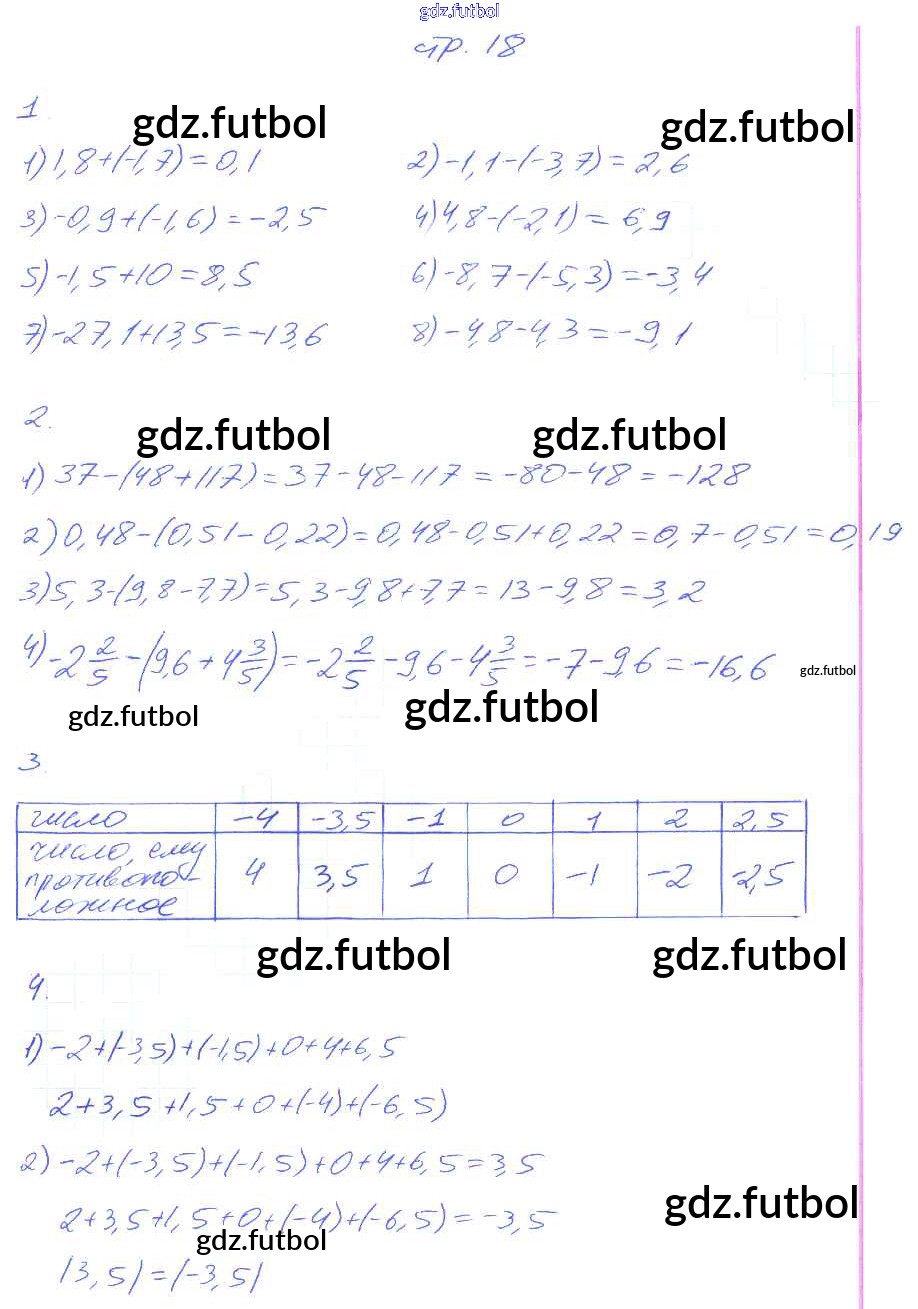 gdz.futbol
стр. 18
1.
gdz.futbol gdz.futbol
1) 1,8+(-1,7)=0,1 2) -1,1-(-3,7)=2,6
3) -0,9+(-1,6)=-2,5 4) 4,8-(-2,1)=6,9
5) -1,5+10=8,5 6) -8,7-(-5,3)=-3,4
7) -27,1+13,5=-13,6 8) -4,8-4,3=-9,1
2.
gdz.futbol gdz.futbol
1) 37-(48+117)=37-48-117=-80-48=-128
2) 0,48-(0,51-0,22)=0,48-0,51+0,22=0,7-0,51=0,19
3) 5,3-(9,8-7,7)=5,3-9,8+7,7=13-9,8=3,2
4) -2 2/5-(9,6+4 3/5)=-2 2/5-9,6-4 3/5=-7-9,6=-16,6
gdz.futbol
gdz.futbol gdz.futbol
3.
число -4 -3,5 -1 0 1 2 2,5
число, ему
противопо- 4 3,5 1 0 -1 -2 -2,5
ложное
gdz.futbol gdz.futbol
4.
1) -2+(-3,5)+(-1,5)+0+4+6,5
2+3,5+1,5+0+(-4)+(-6,5)
2) -2+(-3,5)+(-1,5)+0+4+6,5=3,5
gdz.futbol
2+3,5+1,5+0+(-4)+(-6,5)=-3,5
gdz.futbol
|3,5|=|-3,5|